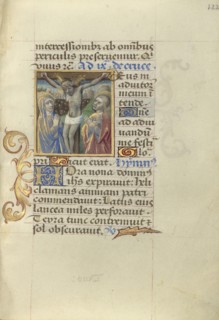 intercessionibz ab omnibus
periculis preseruemur. P
Ad ix de cruce.
eus in
adiutor
meum i
tende
ne
ad adiu
uandū
me festi
Glo
pri Sicut erat. hymn
ora nona dominꝰ
ihs expirauit: heli
clamans animam patri
commendauit: Latus eius
lancea miles perforauit
terra tunc contremuit et
sol obscurauit.